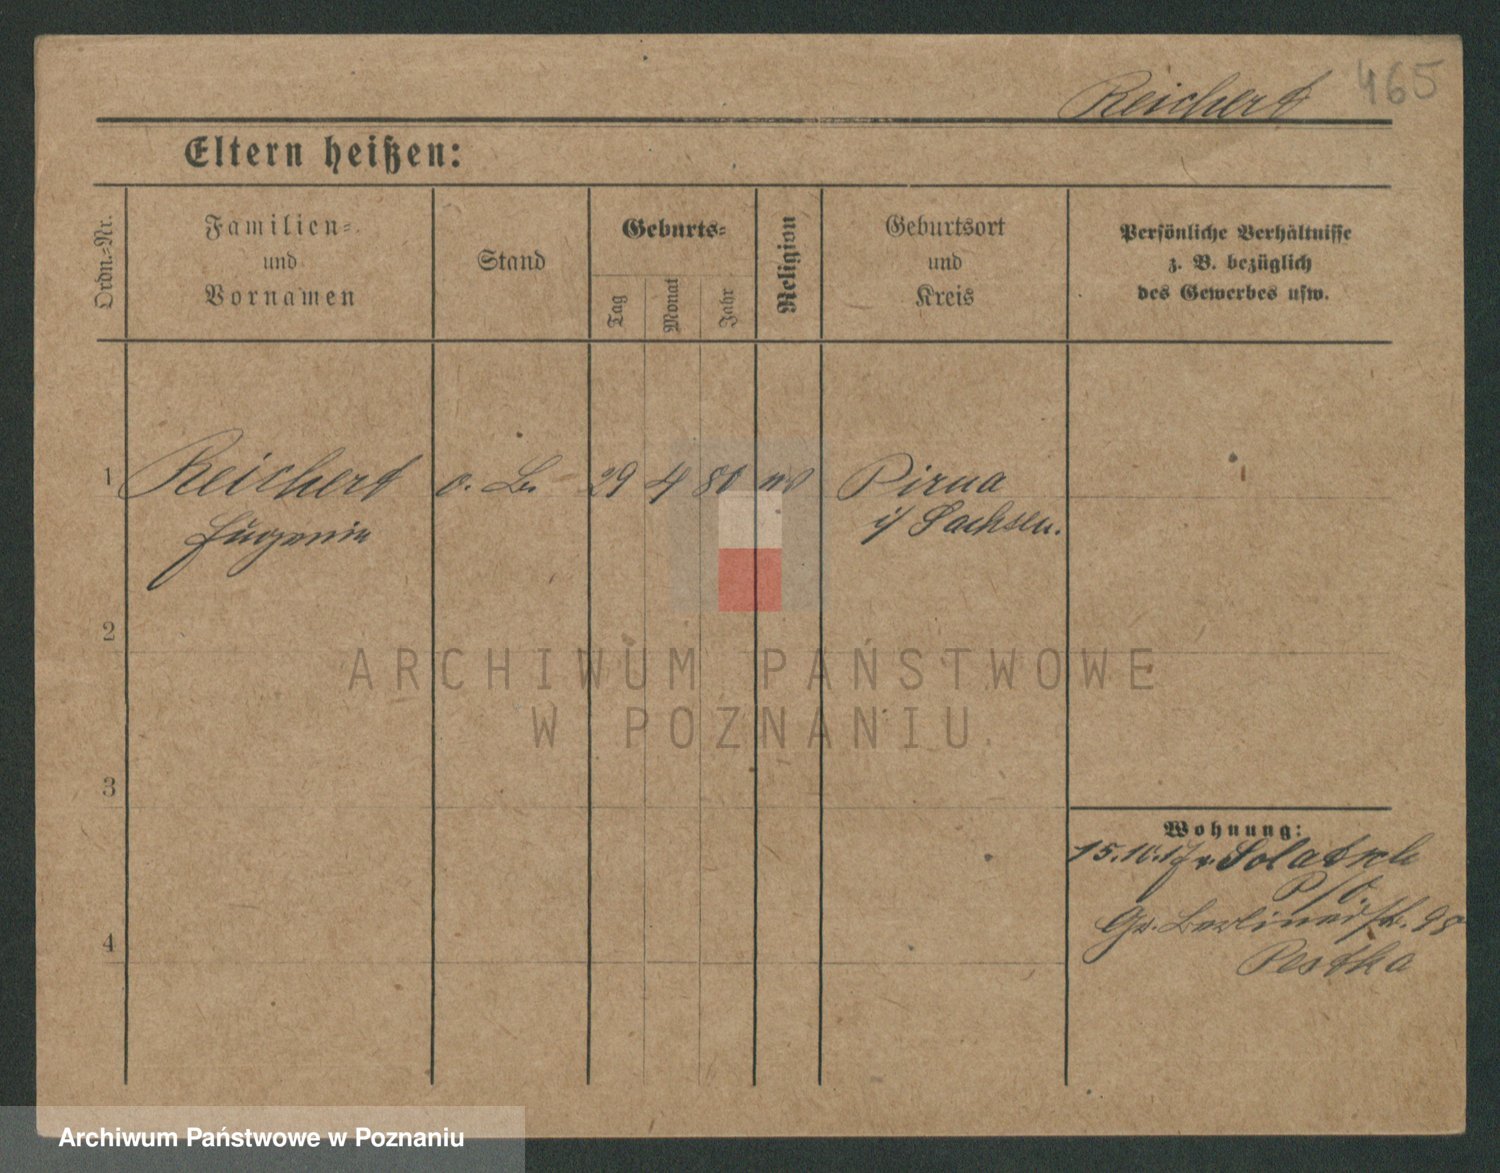 Reichert 465
Eltern heißen:
Ordn.-Nr.
Familien-
und
Vornamen
Stand
Geburts-
Tag
Monat
Jahr
Religion
Geburtsort
und
Kreis
Persönliche Verhältnisse
z. B. bezüglich
des Gewerbes usw.
1 Reichert o. B. 29 4 80 Pirna
Eugenie i/ Sachsen.
2
ARCHIWUM PAŃSTWOWE
W POZNANIU
3
Wohnung:
15.10.17 v. Solatsch
Gr. Berlinerstr. 98
4
Pestka
Archiwum Państwowe w Poznaniu